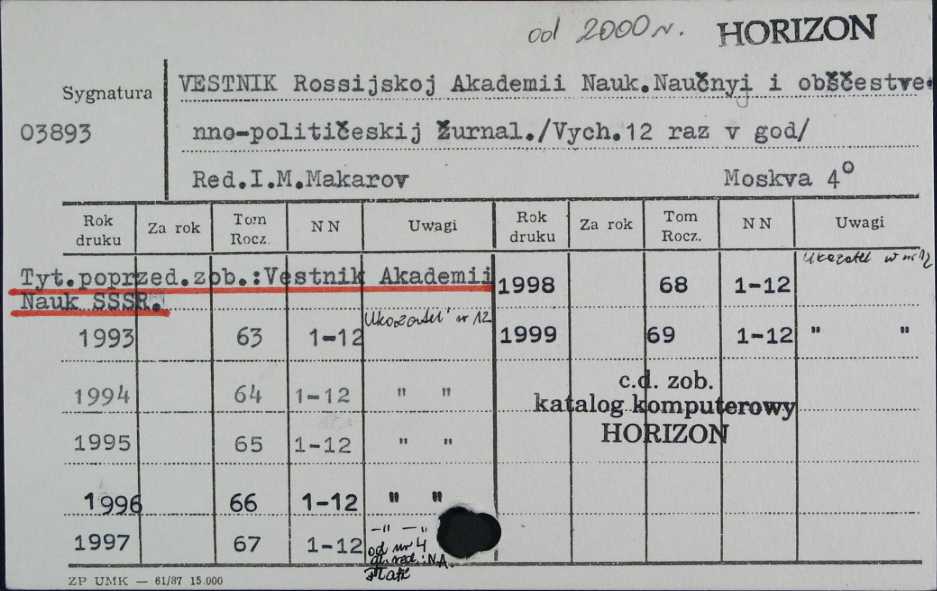 od 2000 r. HORIZON
Sygnatura
03893
VESTNIK Rossijskoj Akademii Nauk.Naučnyj i obščestve-
nno-političeskij žurnal./Vych.12 raz v god/
Red.I.M.Makarov Moskva 4°
Rok druku Za rok Tom Rocz. NN Uwagi Rok druku Za rok Tom Rocz. NN Uwagi
Tyt.poprzed.zob.:Vestnik Akademii
Nauk SSSR.
1993 63 1-12 Ukazatel' w nr 12
1994 64 1-12 " "
1995 65 1-12 " "
1996 66 1-12 " "
1997 67 1-12 –"– –"
od nr 4
red.: N.A.
1998 68 1-12 Ukazatel w nr 12
1999 69 1-12 " "
c.d. zob.
katalog komputerowy
HORIZON
ZP UMK — 61/87 15.000